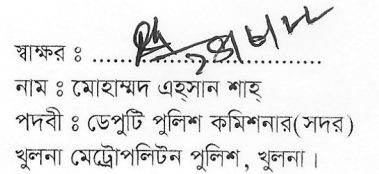 স্বাক্ষর : ........................................
নাম : মোহাম্মদ এহ্সান শাহ্
পদবী : ডেপুটি পুলিশ কমিশনার(সদর)
খুলনা মেট্রোপলিটন পুলিশ, খুলনা।